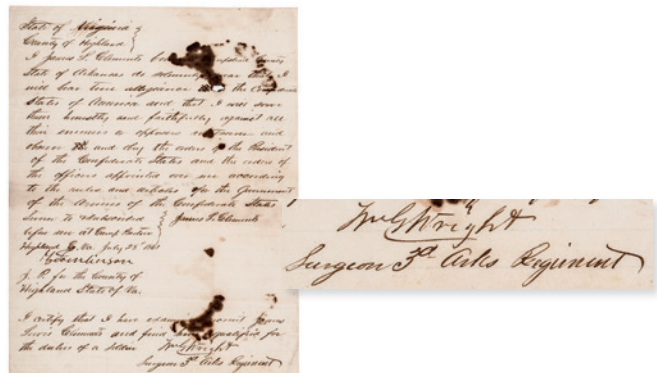 State of Virginia }
County of Highland }
I James L. Clements
State of Arkansas do solemnly swear that I
will bear true allegiance the Confederate
States of America and that I will serve
them honestly and faithfully against all
their enemies or opposers and
observe and obey the orders of the President
of the Confederate States and the orders of
the officers appointed over me according
to the rules and articles for the Government
of the Armies of the Confederate States
Sworn to & subscribed } James L. Clements
before me at Camp
Highland Co. Va. July 1861
J. P. for the County of
Highland State of Va.
I certify that I have James
Lewis Clements and find qualified for
the duties of a soldier Wm G Wright
Surgeon 3d Arks Regiment
Wm G Wright
Surgeon 3d Arks Regiment